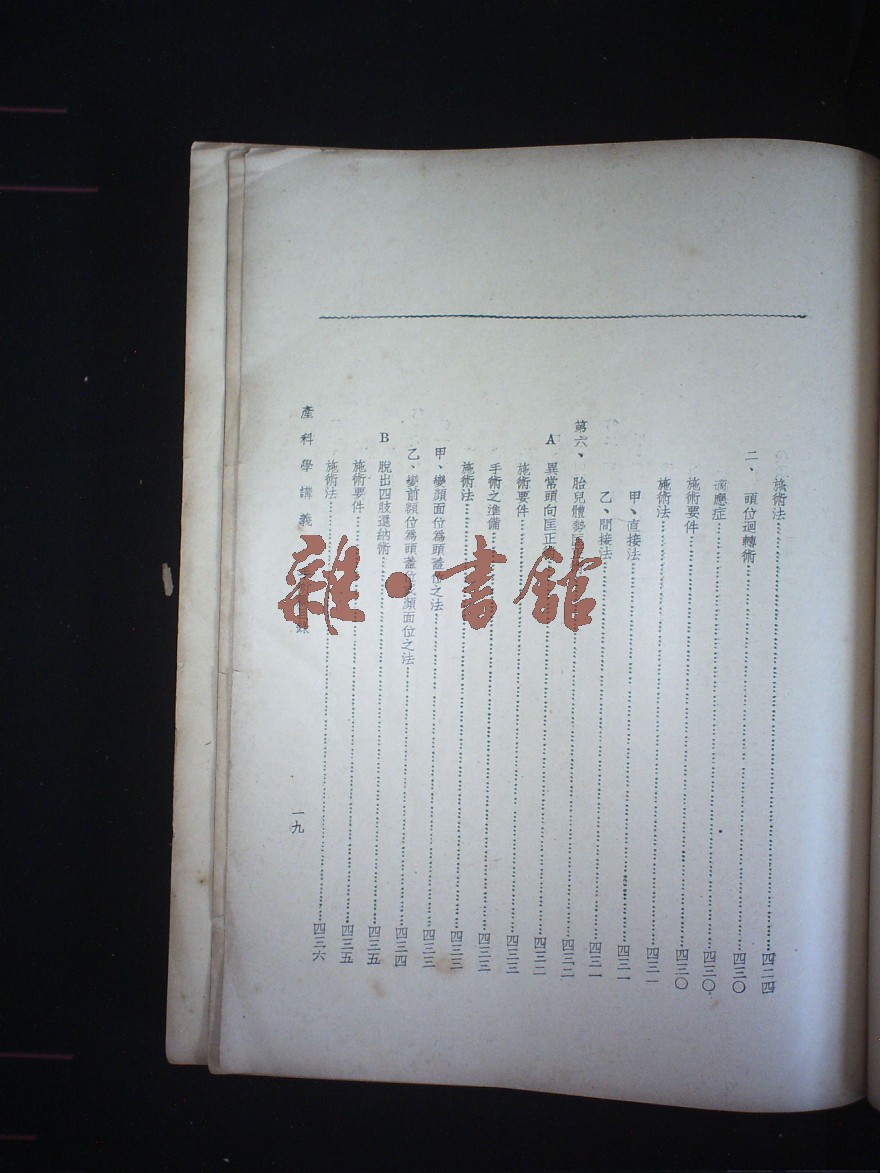 施術法……四二四
二、頭位迴轉術……四三〇
適應症……四三〇
施術要件……四三〇
施術法……四三一
甲、直接法……四三一
乙、間接法……四三一
第六、胎兒體勢匡……四三二
A 異常頭向匡正……四三二
施術要件……四三三
手術之準備……四三三
施術法……四三三
甲、變顏面位爲頭蓋位之法……四三三
乙、變前額位爲頭蓋位 顏面位之法……四三四
B 脫出四肢還納術……四三五
施術要件……四三五
施術法……四三六
產科學講義
一九
雜·書館